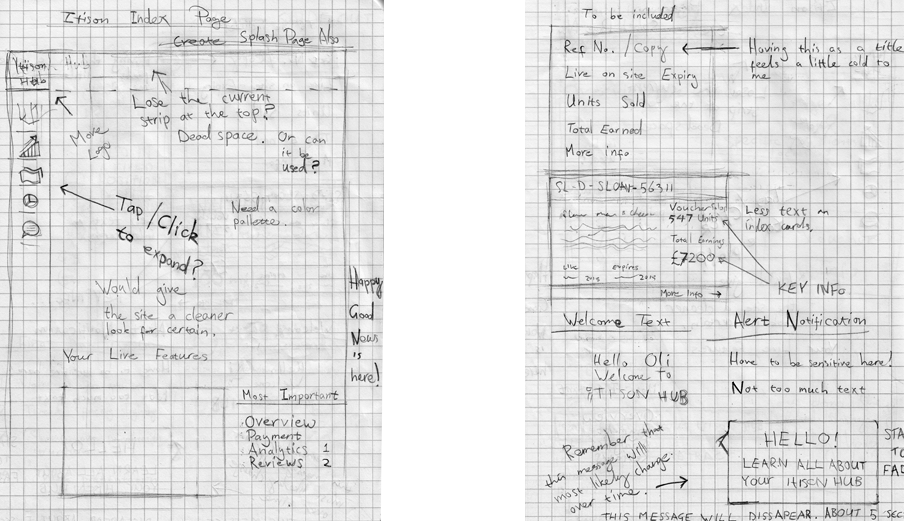 Itison Index Page
Create Splash Page Also
Itison Hub
Hub
Lose the current
strip at the top?
Dead space. Or can
it be
used?
More
Logo
Tap/Click
to expand?
Need a color
pallette.
Would give
the site a cleaner
look for certain.
Happy
Good
News
is
here!
Your Live Features
Most Important
Overview
Payment
Analytics 1
Reviews 2
To be included
Ref No. / Copy
Having this as a title
feels a little cold to
me
Live on site Expiry
Units Sold
Total Earned
More info
SL-D-SLOAN-56311
547 Units
Total Earnings
£7200
Live
expires
More Info →
Less text on
index cards.
KEY INFO
Welcome Text
Hello Oli
Welcome To
ITISON HUB
Alert Notification
Have to be sensitive here!
Not too much text
Remember that
this message will
most likely change
over time.
HELLO!
LEARN ALL ABOUT
YOUR ITISON HUB
STA
TO
FAD
THIS MESSAGE WILL DISSAPEAR. ABOUT 5 SEC